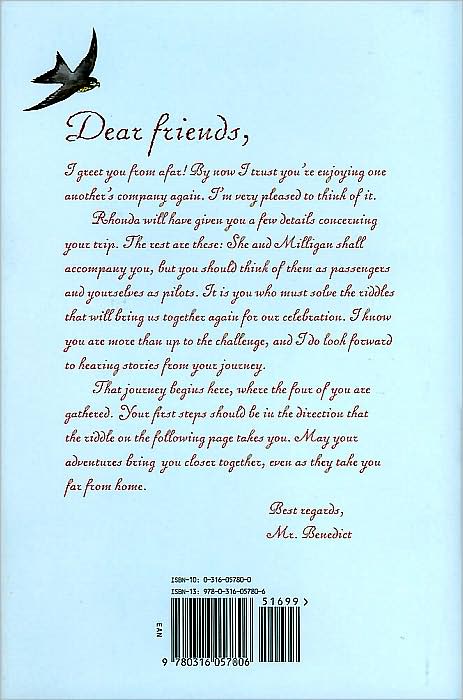 Dear friends,
I greet you from afar! By now I trust you're enjoying one
another's company again. I'm very pleased to think of it.
Rhonda will have given you a few details concerning
your trip. The rest are these: She and Milligan shall
accompany you, but you should think of them as passengers
and yourselves as pilots. It is you who must solve the riddles
that will bring us together again for our celebration. I know
you are more than up to the challenge, and I do look forward
to hearing stories from your journey.
That journey begins here, where the four of you are
gathered. Your first steps should be in the direction that
the riddle on the following page takes you. May your
adventures bring you closer together, even as they take you
far from home.
Best regards,
Mr. Benedict
ISBN-10: 0-316-05780-0
ISBN-13: 978-0-316-05780-6
51699 >
EAN
9 780316 057806